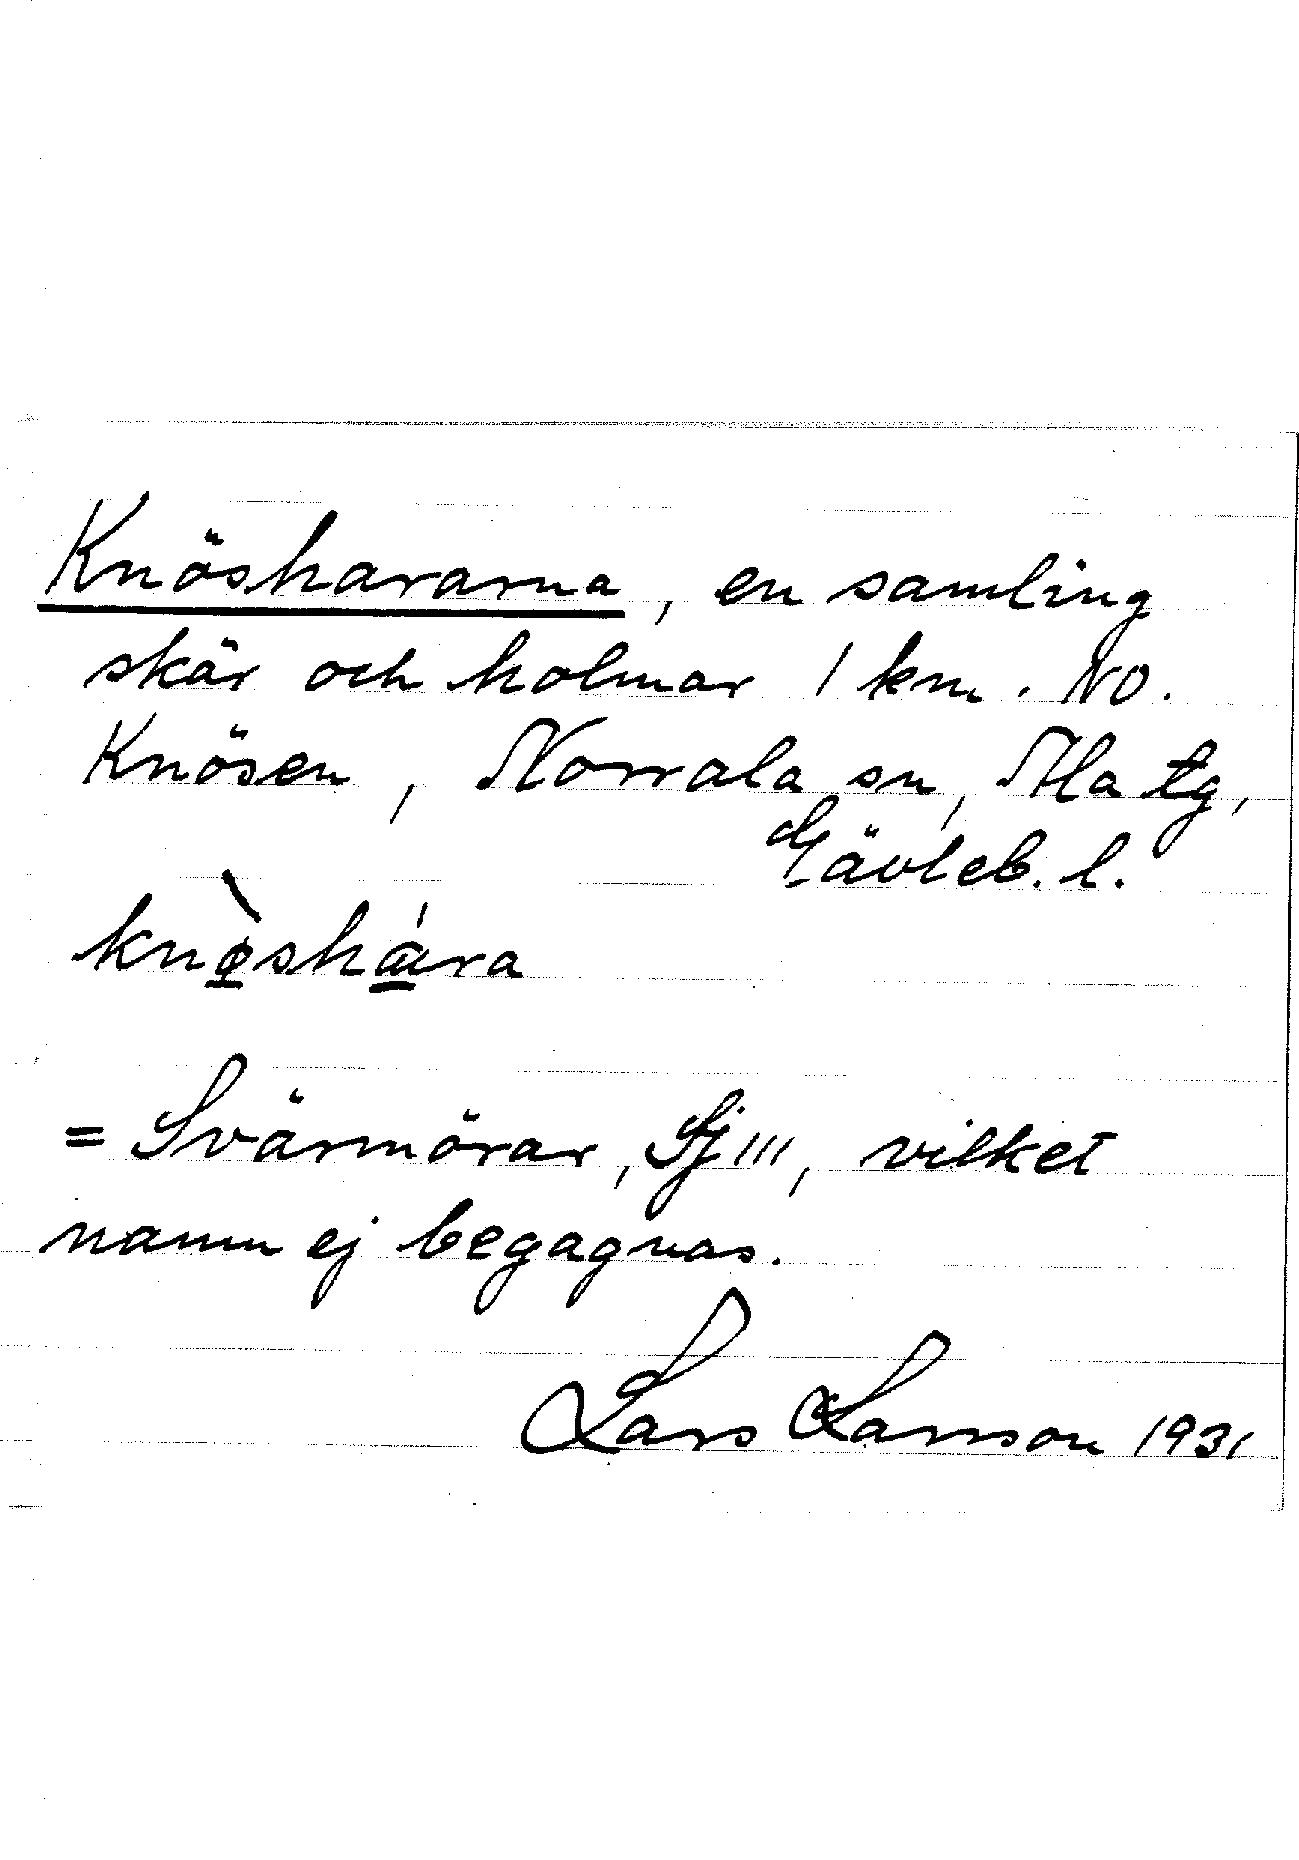 Knöshararna, en samling
skär och holmar 1 km. NO.
Knösen, Norrala sn, Ala tg,
Gävleb. l.
knø̀shɑ́ra
= Svärmörar, Sj 111, vilket
namn ej begagnas.
Lars Larsson 1931